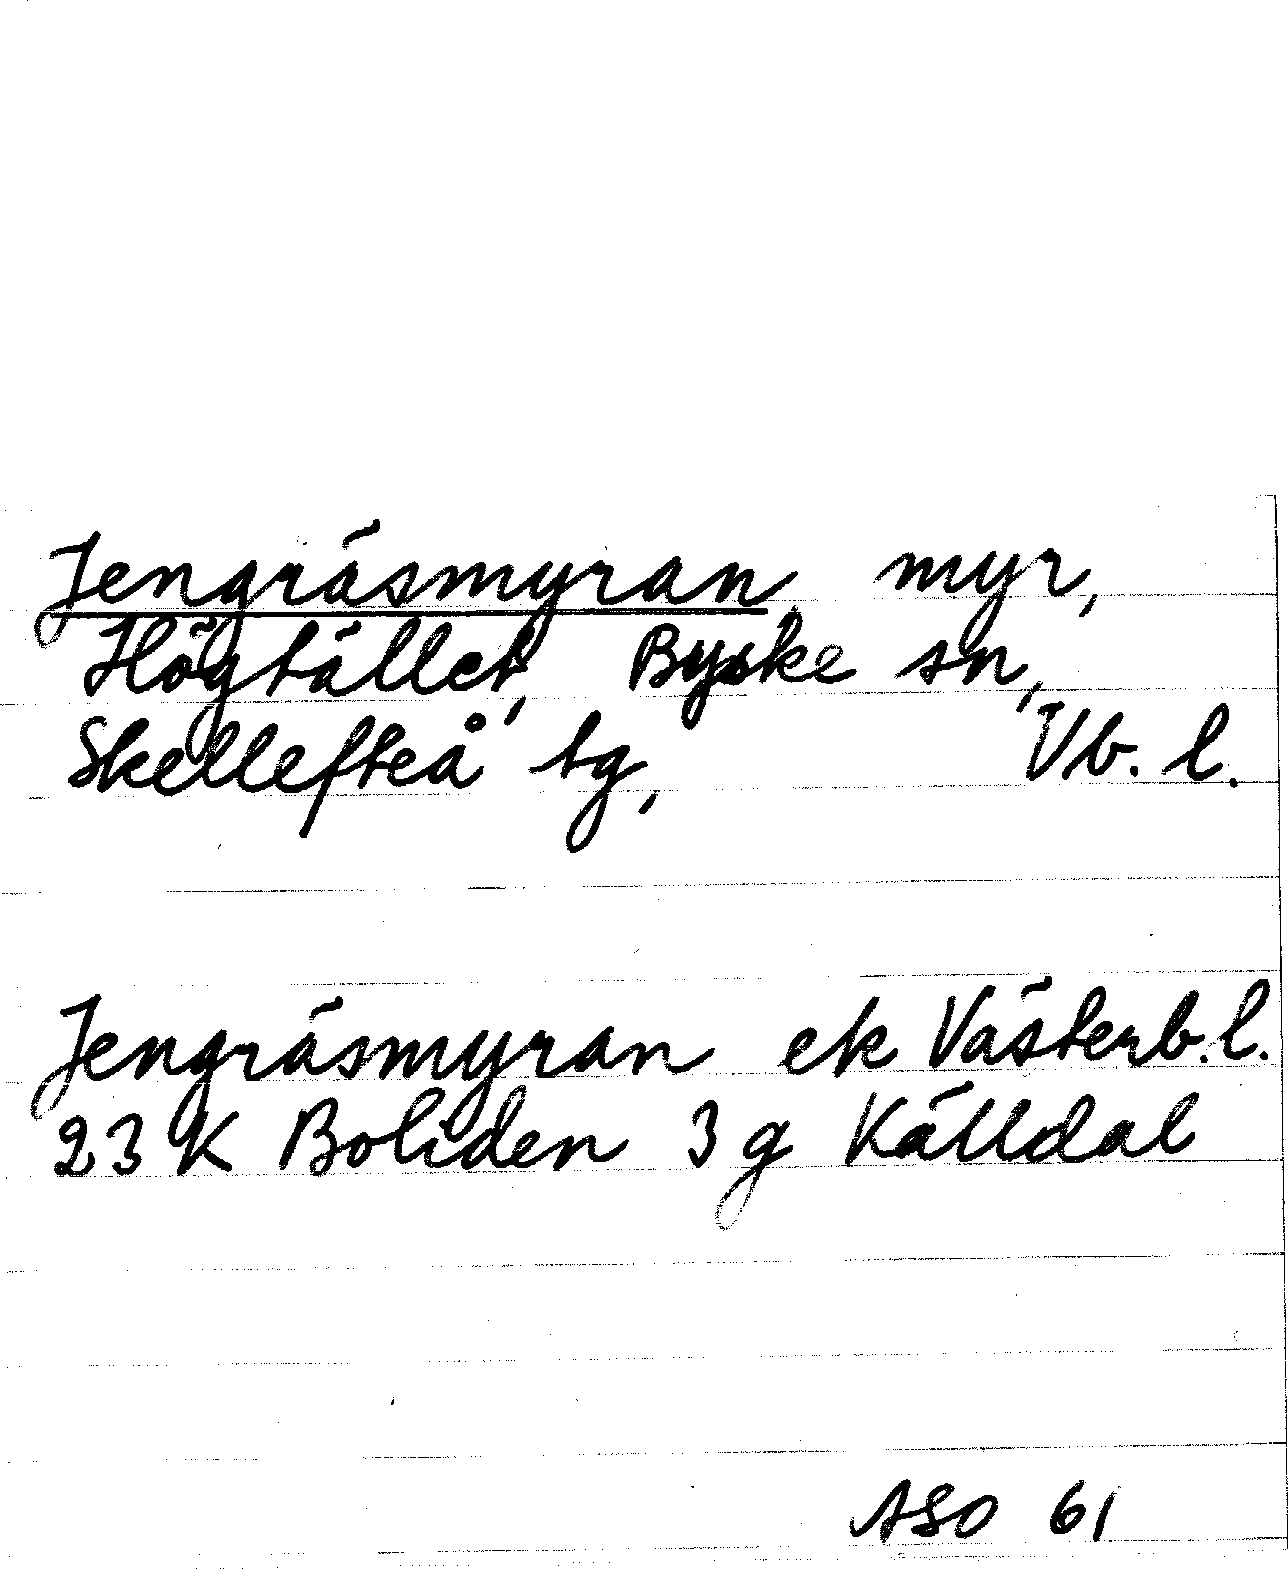 Jengräsmyran, myr,
Högtället, Byske sn,
Skellefteå tg, Vb. l.
Jengräsmyran ek Västerb. l.
23 K Boliden 3 g Källdal
ASO 61